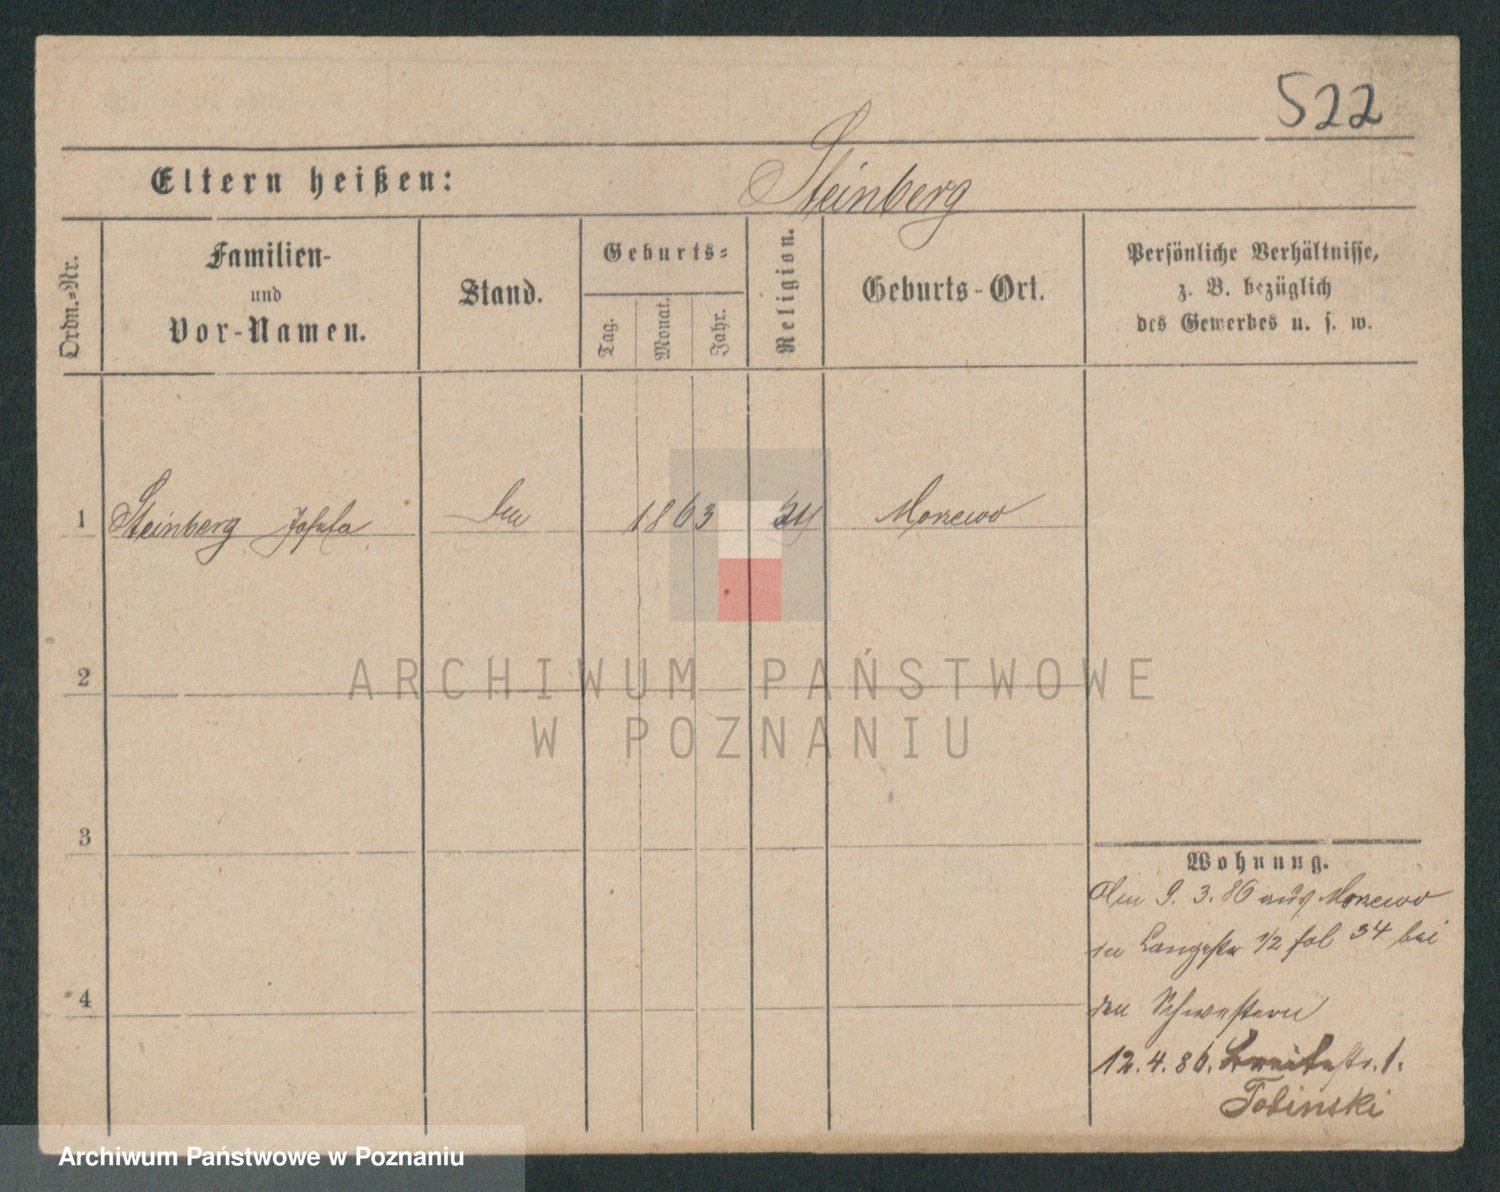 522
Eltern heißen: Steinberg
Ordn.-Nr.
Familien-
und
Vor-Namen.
Stand.
Geburts-
Tag.
Monat.
Jahr.
Religion.
Geburts-Ort.
Persönliche Verhältnisse,
z. B. bezüglich
des Gewerbes u. s. w.
1 Steinberg Josefa 1863 Morzewo
2
3
4
Wohnung.
Am 9. 3. 86 aus Morzewo
in Langestr 1/2 fol 34 bei
den Schwestern
12. 4. 86. Breitestr. 1.
Tobinski
ARCHIWUM PAŃSTWOWE
W POZNANIU
Archiwum Państwowe w Poznaniu